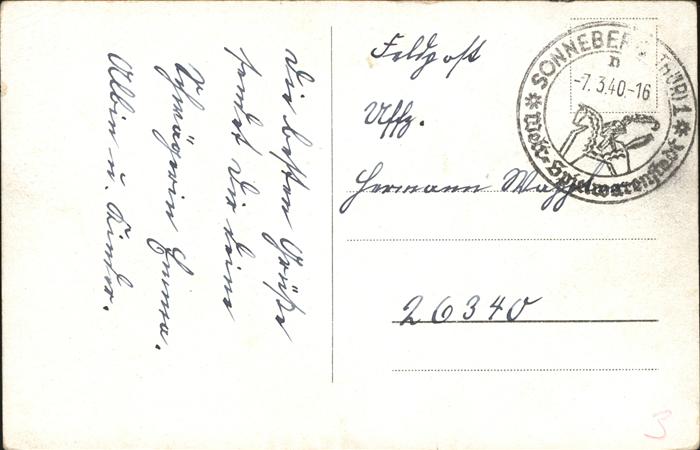 Die besten Grüße
sendet Dir Deine
Schwägerin Emma.
Albin u. Kinder.
Feldpost
Uffz.
Hermann
26340
SONNEBERG (THÜR) 1
n
-7.3.40.-16
Welt-Spielwarenstadt
3